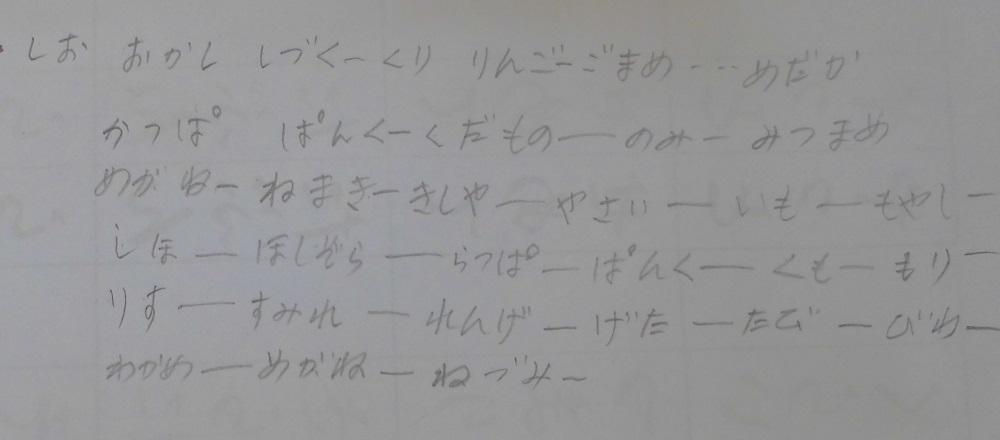 しお おかし しづくーくり りんごーごまめ-…めだか
かっぱ ぱんくーくだものーのみーみつまめ
めがねーねまきーきしゃーやさいーいもーもやしー
しほーほしぞらーらっぱーぱんくーくもーもりー
りすーすみれーれんげーげたーたびーびわー
わかめーめがねーねづみー